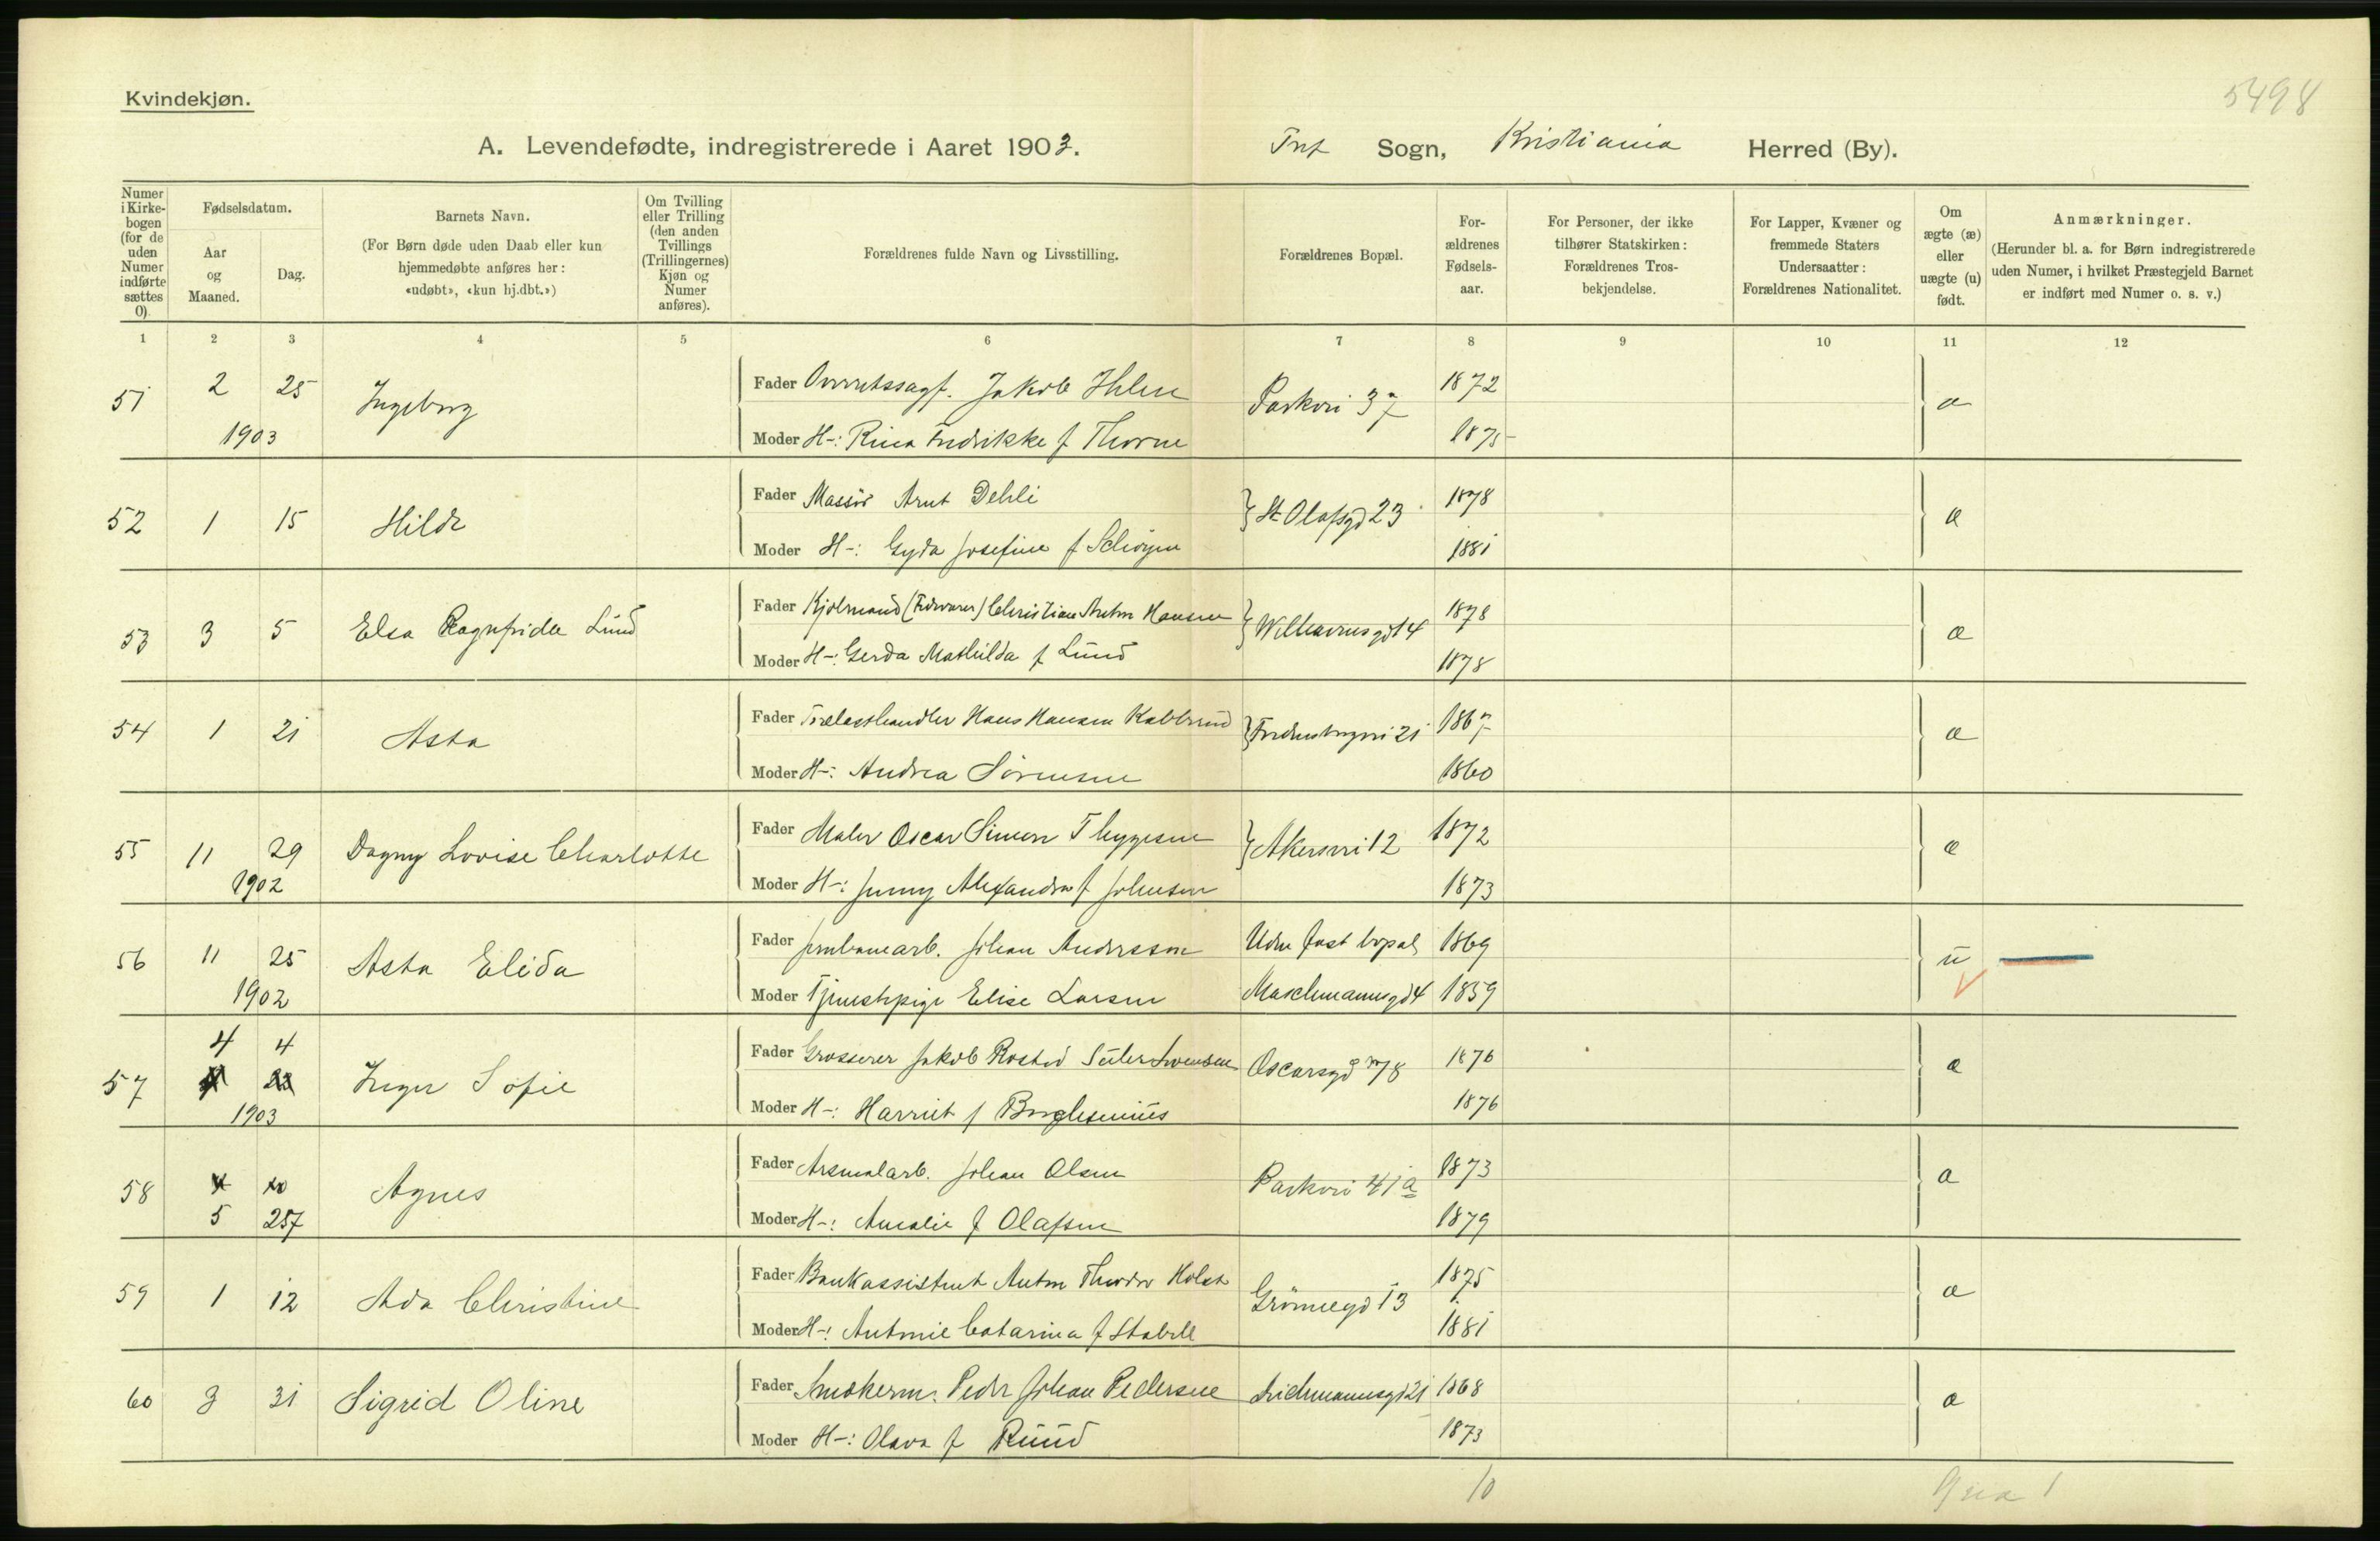 Kvindekjøn.
5498
A. Levendefødte, indregistrerede i Aaret 1903. Trf Sogn, Kristiania Herred (By).
Numer i Kirkebogen (for de uden Numer indførte sættes 0).
Fødselsdatum.
Aar og Maaned.
Dag.
Barnets Navn.
(For Børn døde uden Daab eller kun hjemmedøbte anføres her: «udøbt», «kun hj.dbt.»)
Om Tvilling eller Trilling (den anden Tvillings (Trillingernes) Kjøn og Numer anføres).
Forældrenes fulde Navn og Livsstilling.
Forældrenes Bopæl.
Forældrenes Fødselsaar.
For Personer, der ikke tilhører Statskirken: Forældrenes Trosbekjendelse.
For Lapper, Kvæner og fremmede Staters Undersaatter: Forældrenes Nationalitet.
Om ægte (æ) eller uægte (u) født.
Anmærkninger.
(Herunder bl. a. for Børn indregistrerede uden Numer, i hvilket Præstegjeld Barnet er indført med Numer o. s. v.)
1 2 3 4 5 6 7 8 9 10 11 12
51 2 25 Ingeborg Fader Overretssagf. Jakob Ihlen Parkvei 37 1872 æ
1903 Moder H-: Rina Fredrikke f Thorne 1875
52 1 15 Hilde Fader Massör Arnt Dehli St Olafsgd 23 1878 æ
Moder H-: Gyda Josefine f 1881
53 3 5 Elsa Ragnfride Lund Fader Kjolmand Christian Anton Hansen Wilhelmsgd 14 1878 æ
Moder H-: Gerda Mathilda f Lund 1878
54 1 21 Asta Fader Trælasthandler Hans Hansen Kabbrud 21 1867 æ
Moder H-: Andrea Sörensen 1860
55 11 29 Dagny Lovise Charlotte Fader Maler Oscar Simon Thygesen Akersvei 12 1872 æ
1902 Moder H-: Jenny Alexandra f Johnsen 1873
56 11 25 Asta Elida Fader Jernbanearb. Johan Andersson Uden fast bopæl 1869 u
1902 Moder Tjenestepige Elise Larsen Maschmannsgd 4 1859
4 4
57 Inger Sofie Fader Grosserer Jakob Rosted Süler Svendsen Oscarsgd 78 1876 æ
1903 Moder H-: Harriet f 1876
58 4 20 Agnes Fader Arsenalarb. Johan Olsen Parkvei 41 a 1873 æ
5 257 Moder H-: Amalie f Olafsen 1879
59 1 12 Ada Christine Fader Bankassistent Anton Theodor Holst Grönnegd 13 1875 æ
Moder H-: Antonie Catarina f Stabell 1881
60 3 31 Sigrid Oline Fader Snekkerm. Peder Johan Pedersen Deichmannsgd 21 1868 æ
Moder H-: Olava f Ruud 1873
10 1